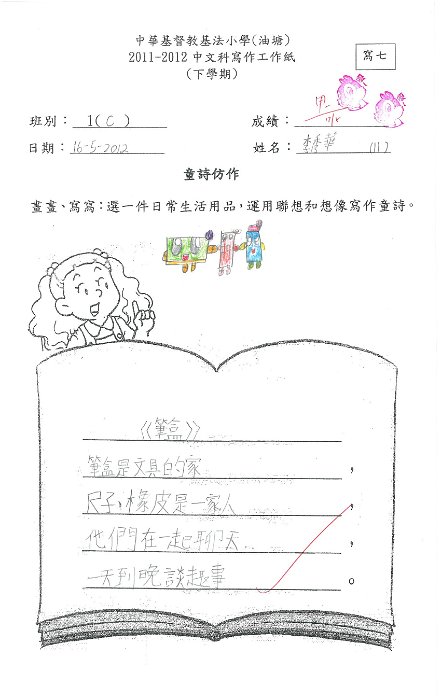 中華基督教基法小學(油塘)
2011-2012中文科寫作工作紙
(下學期)
寫七
班別: 1(C)
成績: 甲
日期: 16-5-2012
姓名: 李秀華 (11)
童詩仿作
畫畫、寫寫:選一件日常生活用品,運用聯想和想像寫作童詩。
《筆盒》
筆盒是文具的家,
尺子,橡皮是一家人,
他們在一起聊天,
一天到晚談趣事。